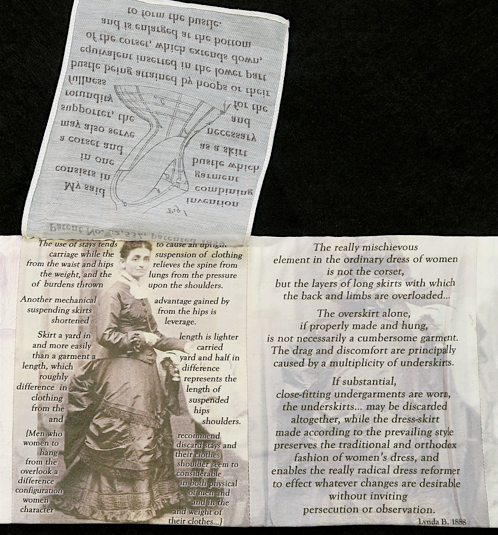 Patent No.
My said invention
consists in combining
in one garment
a corset and bustle which
may also serve as a skirt
supporter, the necessary
rotundity and
fullness for the
bustle being attained by hoops or their
equivalent inserted in the lower part
of the corset, which extends down,
and is enlarged at the bottom
to form the bustle.
Fig 1
The use of stays tends to cause an upright
carriage while the suspension of clothing
from the waist and hips relieves the spine from
the weight, and the lungs from the pressure
of burdens thrown upon the shoulders.
Another mechanical advantage gained by
suspending skirts from the hips is
shortened leverage.
Skirt a yard in length is lighter
and more easily carried
than a garment a yard and half in
length, which difference
roughly represents the
difference in length of
clothing suspended
from the hips
and shoulders.
[Men who recommend
women to discard stays and
hang their clothes
from the shoulder seem to
overlook a considerable
difference in both physical
configuration of men and
women and in the
character and weight of
their clothes...]
The really mischievous
element in the ordinary dress of women
is not the corset,
but the layers of long skirts with which
the back and limbs are overloaded...
The overskirt alone,
if properly made and hung,
is not necessarily a cumbersome garment.
The drag and discomfort are principally
caused by a multiplicity of underskirts.
If substantial,
close-fitting undergarments are worn,
the underskirts... may be discarded
altogether, while the dress-skirt
made according to the prevailing style
preserves the traditional and orthodox
fashion of women's dress, and
enables the really radical dress reformer
to effect whatever changes are desirable
without inviting
persecution or observation.
Lynda B. 1888